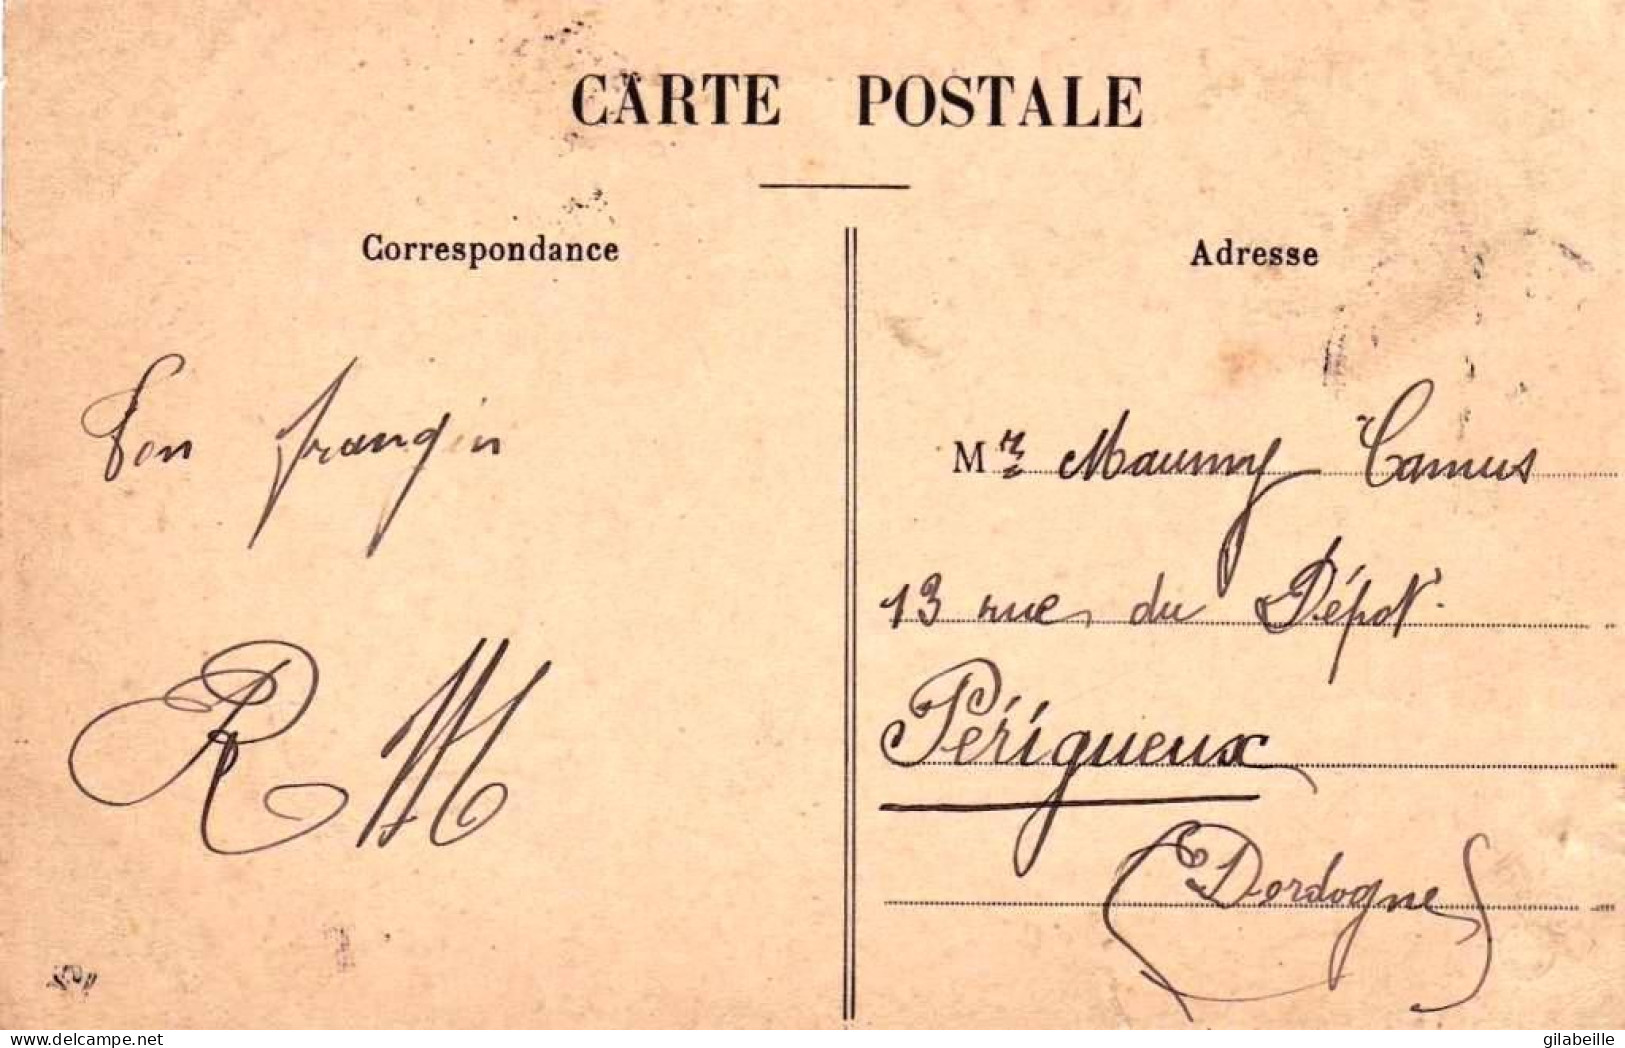 CARTE POSTALE
Correspondance
Ton frangin
R M
Adresse
Mr Maumy Camus
13 rue du Dépôt.
Périgueux
(Dordogne)
delcampe.net
gilabeille